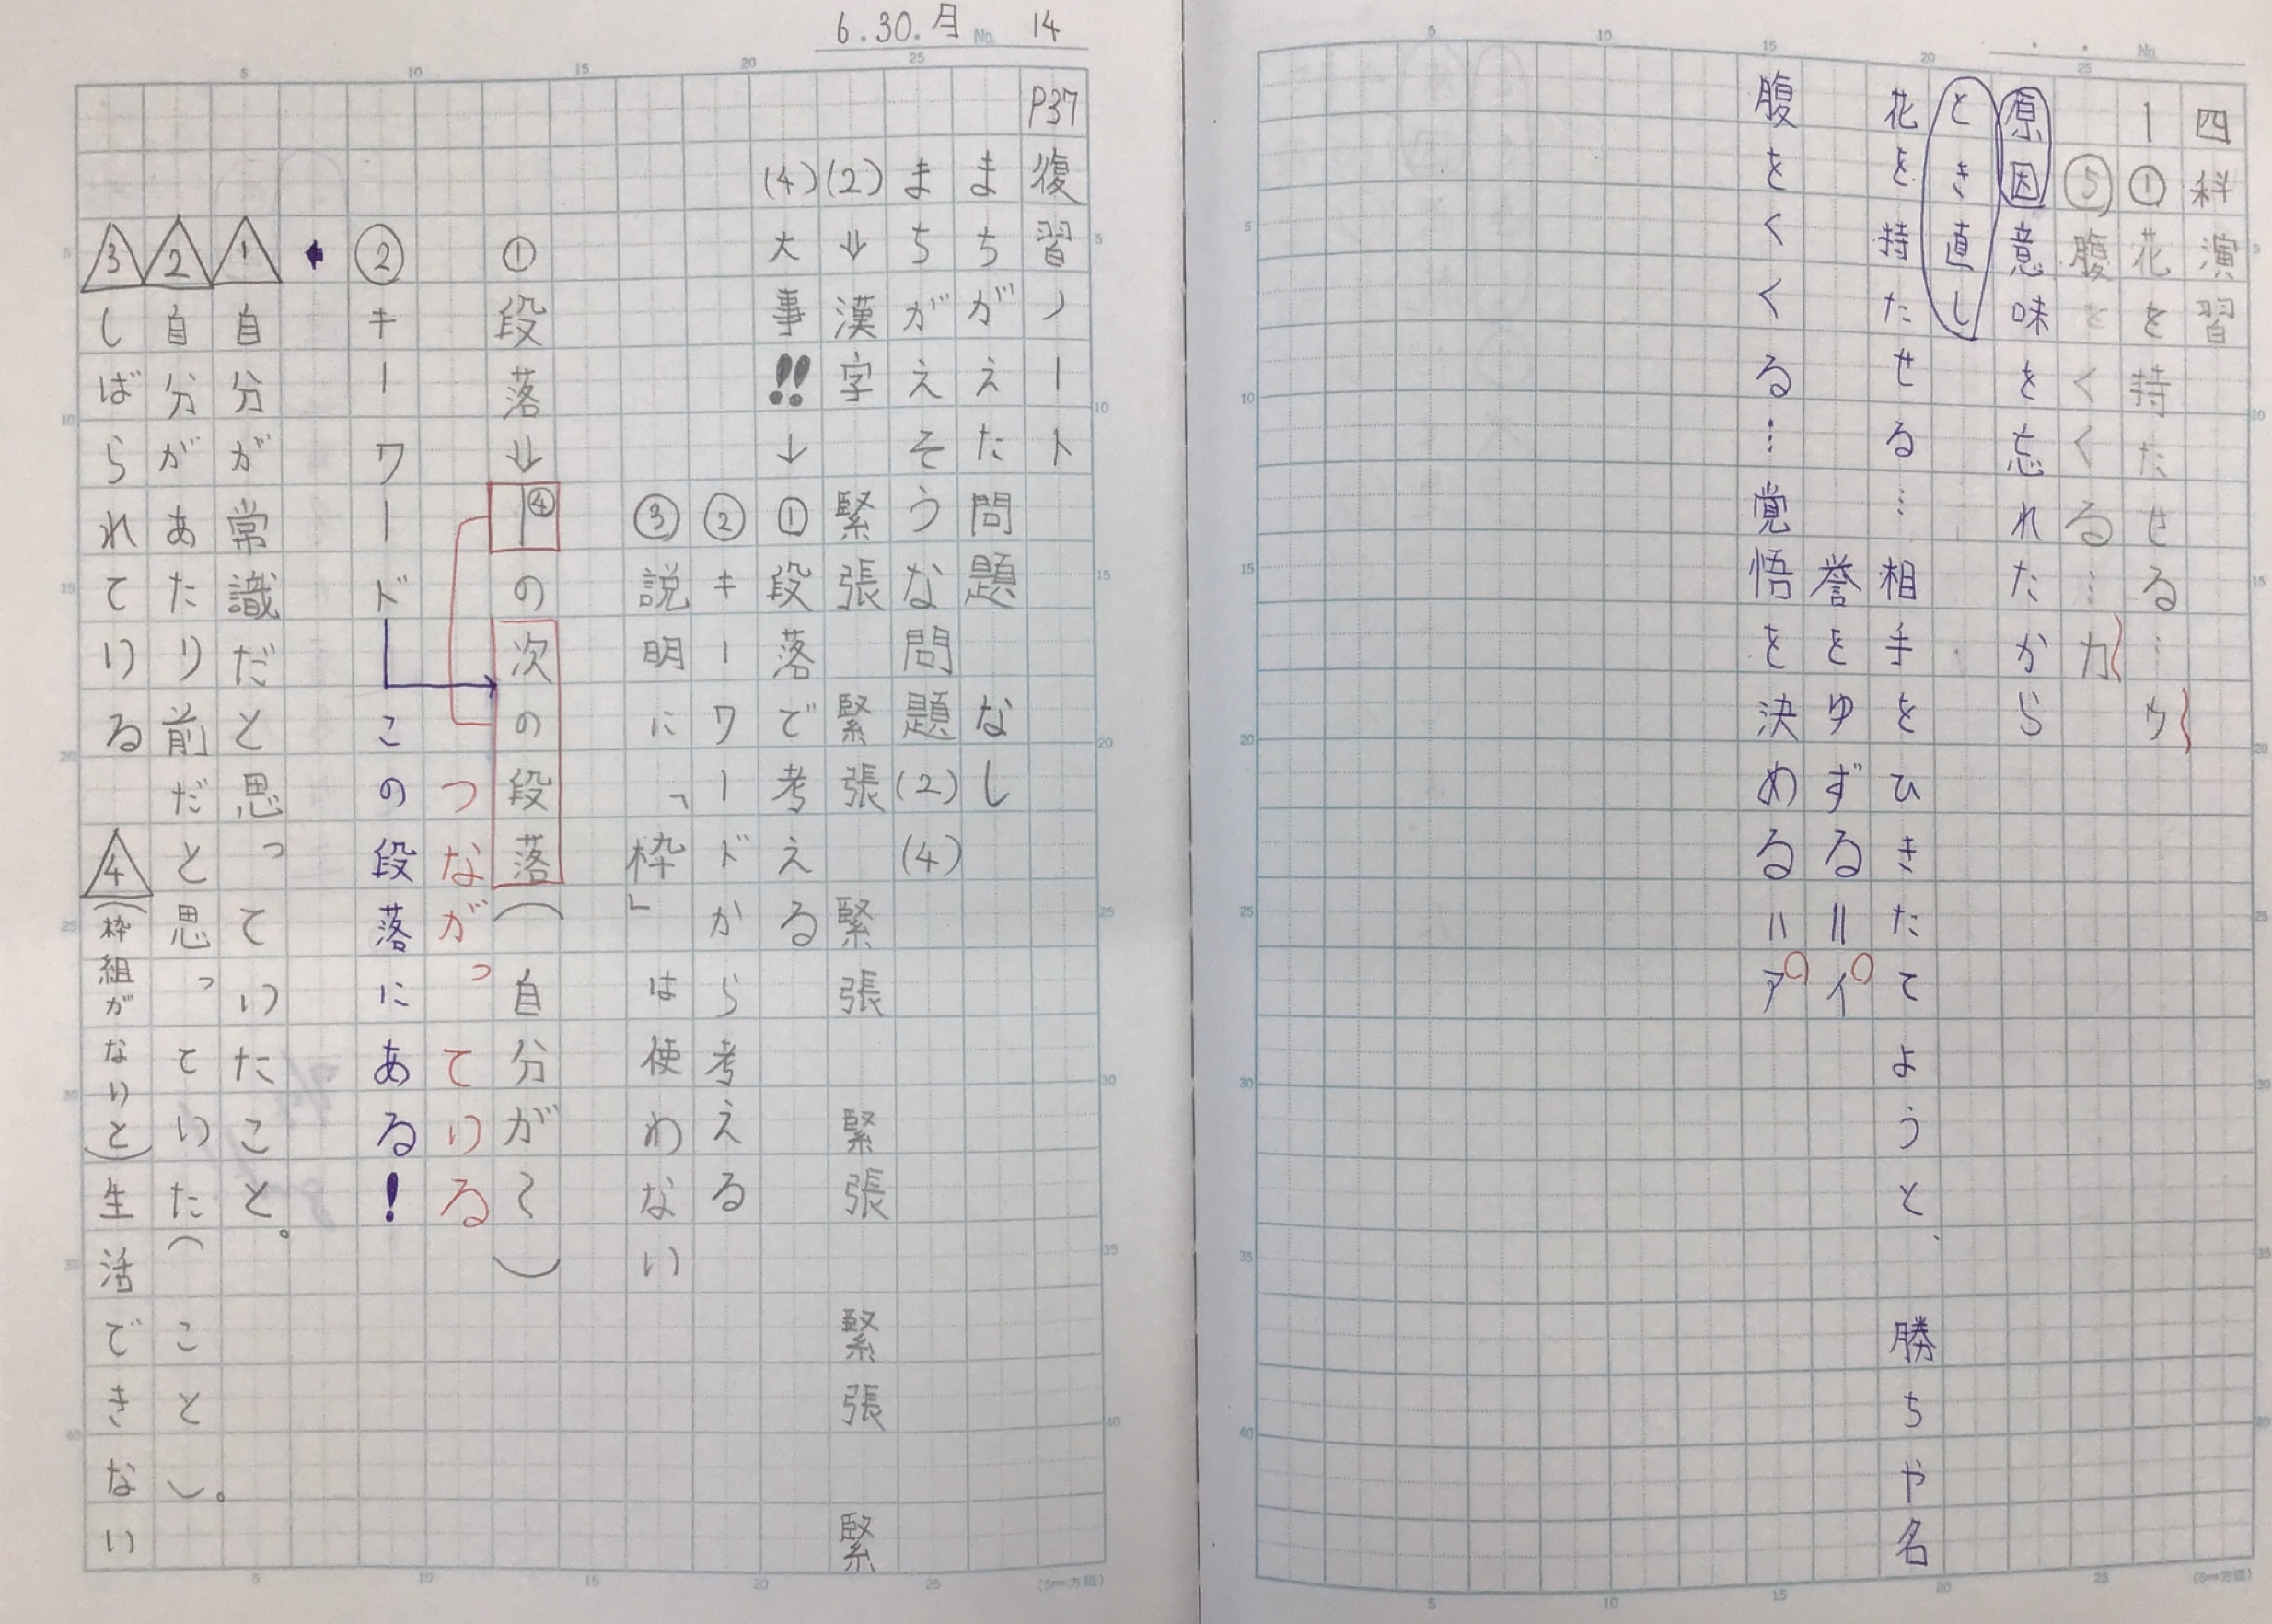 四科演習
一①花を持たせる…ウ
⑤腹をくくる…カ
原因意味を忘れたから
とき直し
花を持たせる…相手をひきたてようと、勝ちや名
誉をゆずる=イ
腹をくくる…覚悟を決める=ア
6.30.月 No. 14
P37復習ノート
まちがえた問題 なし
まちがえそうな問題(2)(4)
(2)→漢字 緊張 緊張 緊張 緊張 緊張 緊
(4)大事!!→①段落で考える
②キーワードから考える
③説明に「枠」は使わない
①段落→④一の次の段落(自分が〜)
つながっている
②キーワード この段落にある!
1自分が常識だと思っていたこと。
2自分があたり前だと思っていた(こと)。
3しばられている 4(枠組がないと)生活できない
(5mm方眼)